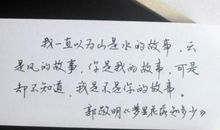 我一直以为山是水的故事，云
是风的故事，你是我的故事，可是
却不知道，我是不是你的故事。
郭敬明《梦里花落知多少》